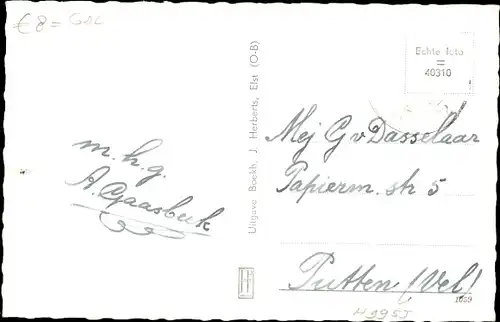 € 8 =
Echte foto
=
40310
m. h. g.
A. Gaasbeek
Uitgave Boekh. J. Herberts, Elst (O-B)
Mej G v Dasselaar
Papierm. str 5
Putten (Vel)
1059